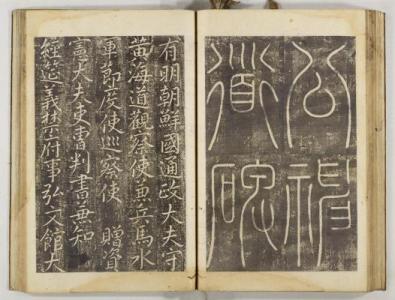 公神
道碑
有明朝鮮國通政大夫守
黃海道觀察使兼兵馬水
軍節度使巡察使 贈資
憲大夫吏曹判書兼知
經筵義禁府事弘文館大